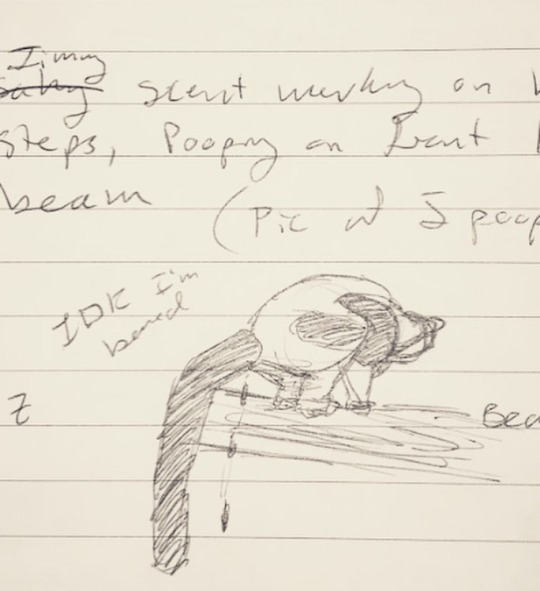 Jimmy
scent marking on
steps, Pooping on front
beam
(Pic of J poop
IDK I'm
bored
Z
Bea